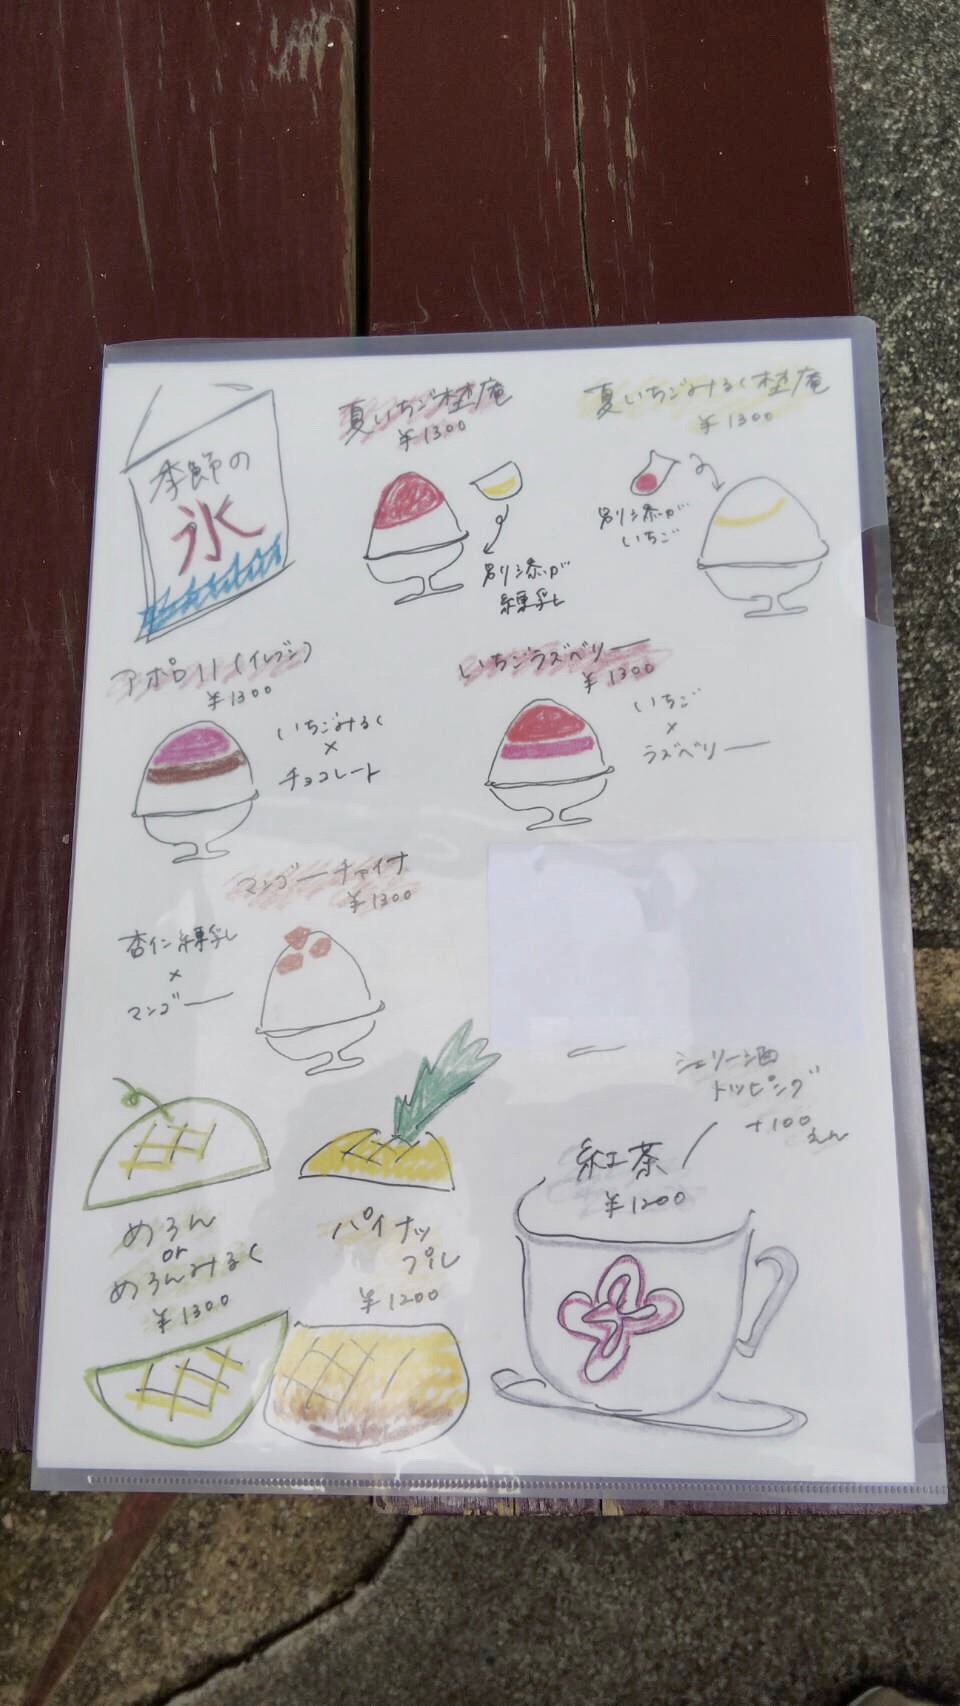 季節の
氷
夏いちご埜庵
¥1300
別添が
練乳
夏いちごみるく埜庵
¥1300
別添が
いちご
アポロ11(イレブン)
¥1300
いちごみるく
×
チョコレート
いちごラズベリー
¥1300
いちご
×
ラズベリー
マンゴーチャイナ
¥1300
杏仁練乳
×
マンゴー
めろん
or
めろんみるく
¥1300
パイナッ
プル
¥1200
紅茶
¥1200
シェリー酒
トッピング
+100
えん